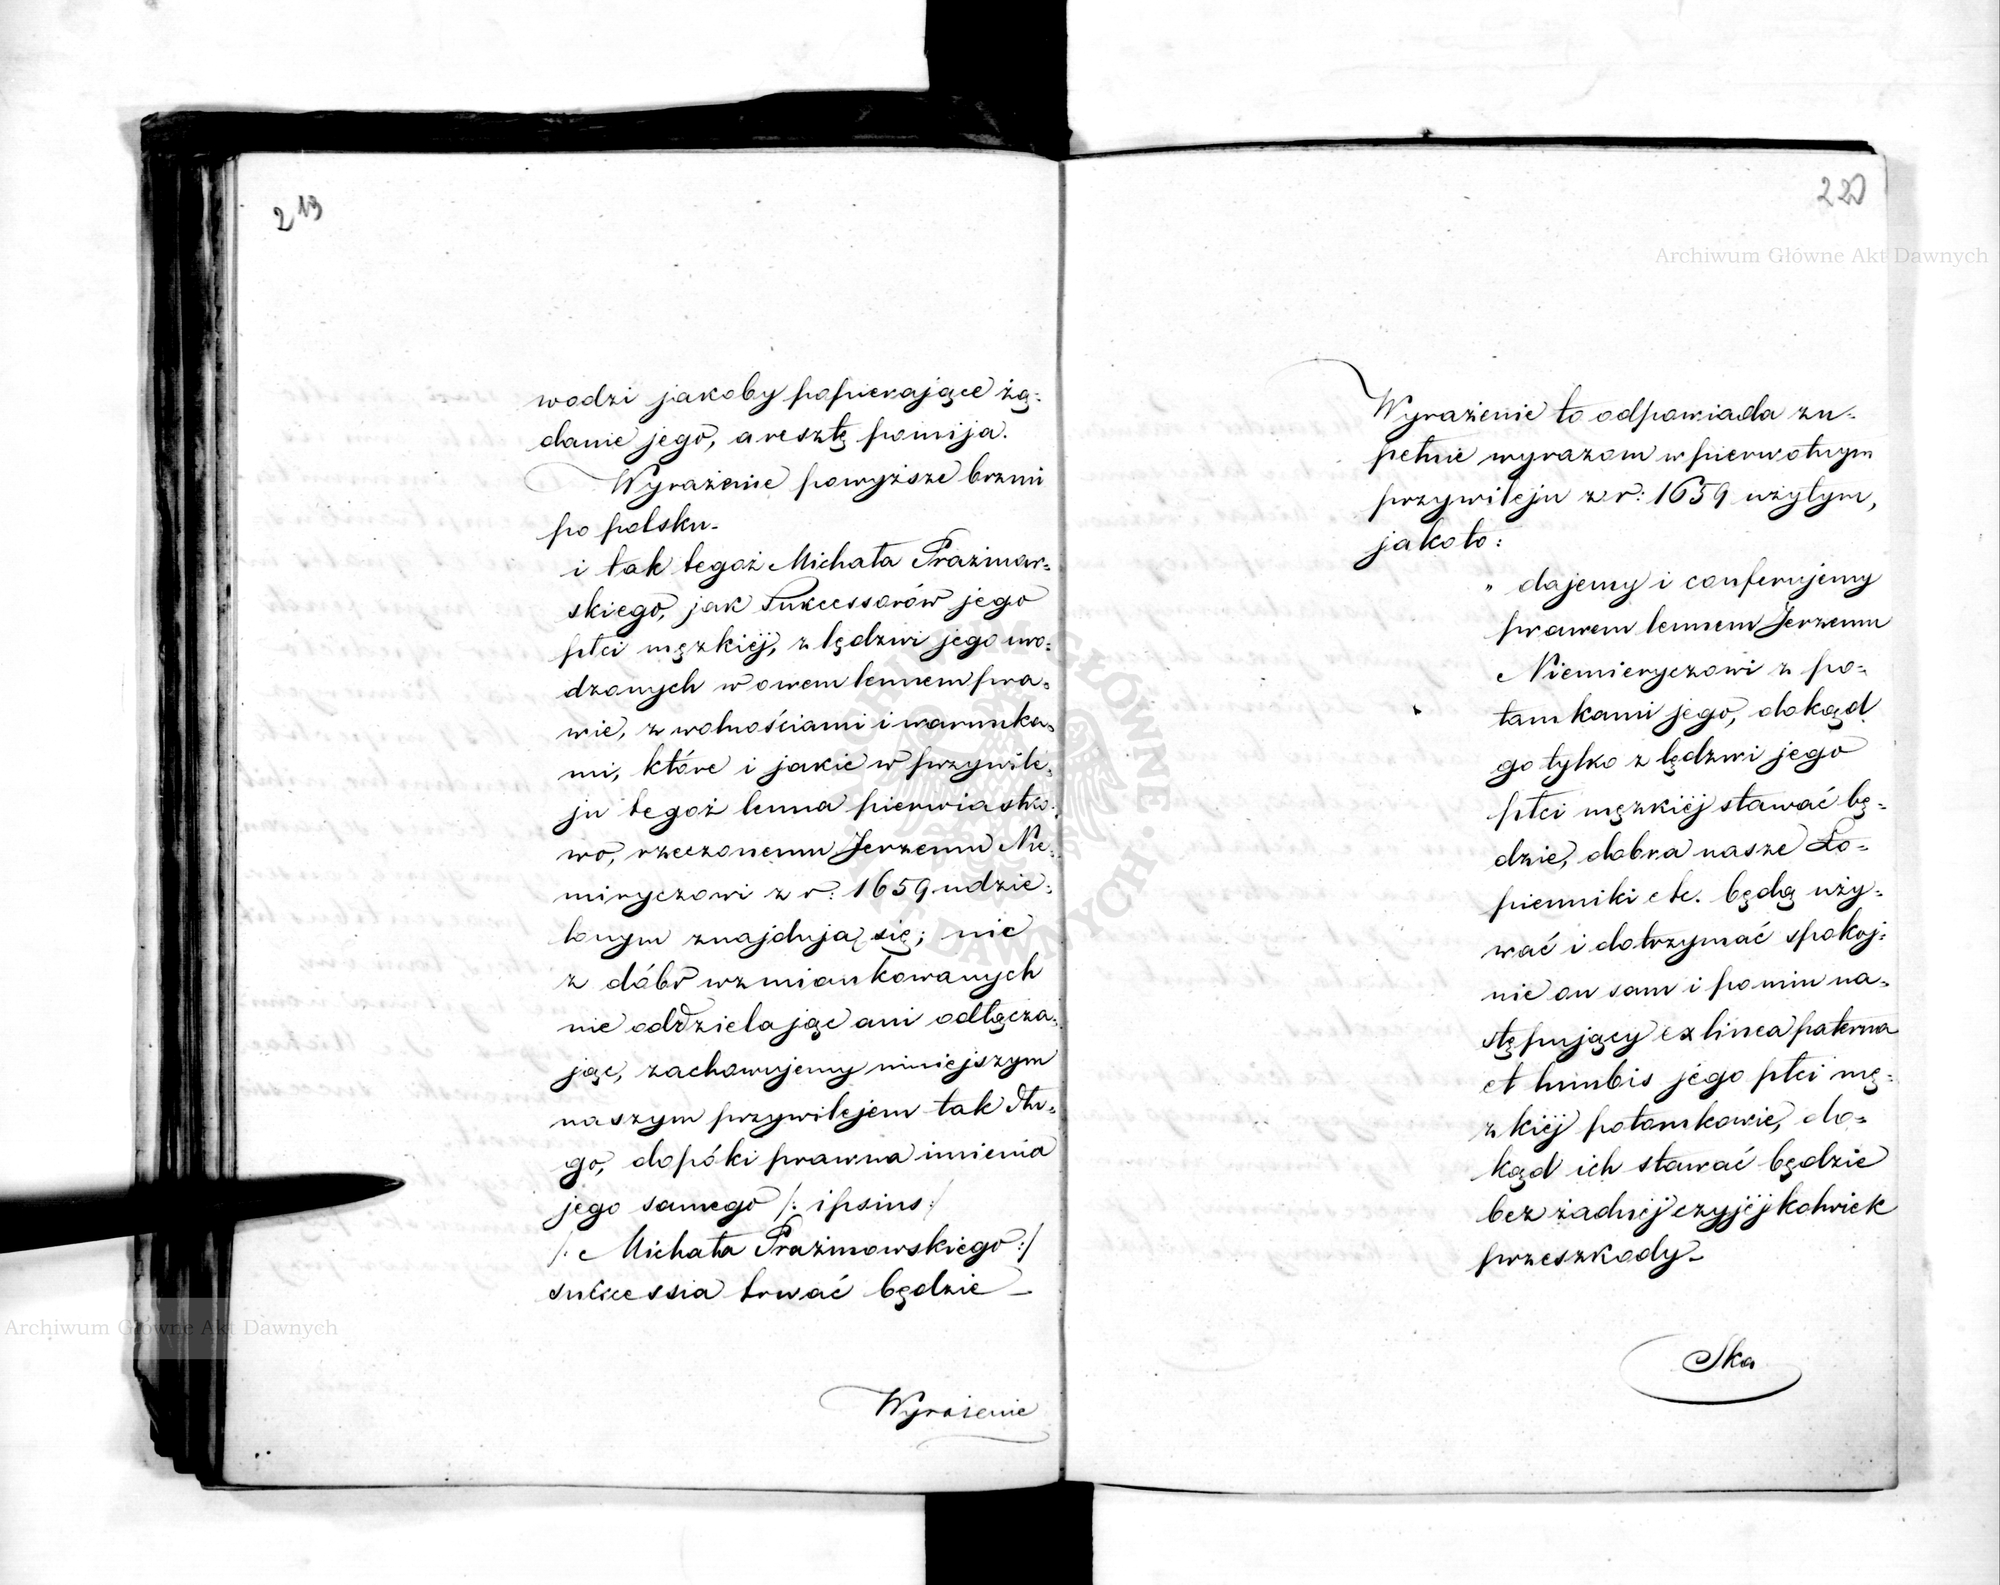 213
wodzi jakoby popierające żą=
danie jego, a resztę pomija.
Wyrażenie powyższe brzmi
po polsku.
i tak tegoż Michała Prażmow=
skiego, jak Sukcessorów jego
płci męzkiéj, z lędzwi jego uro=
dzonych w owem lennem pra=
wie, z wolnościami i warunka=
mi, które i jakie w przywile=
ju tegoż lenna pierwiastko=
wo, rzeczonemu Jerzemu Nie=
miryczowi z r: 1659 udzie=
lonym znajdują się; nic
z dóbr wzmiankowanych
nie oddzielając ani odłącza=
jąc, zachowujemy niniejszym
naszym przywilejem tak dłu=
go, dopóki prawna imienia
jego samego /: ipsius :/
/: Michała Prażmowskiego :/
sukcessia trwać będzie _
Wyrażenie
220
Wyrażenie to odpowiada zu=
pełnie wyrazom w pierwotnym
przywileju z r: 1659 użytym,
jako to:
" dajemy i conferujemy
prawem lennem Jerzemu
Niemieryczowi z po=
tomkami jego, dokąd
go tylko z lędzwi jego
płci męzkiéj stawać bę=
dzie, dobra nasze Ło=
pienniki etc. będą uży=
wać i dotrzymać spokoj=
nie on sam i po nim na=
stępujący ex linea paterna
et lumbis jego płci mę=
zkiéj potomkowie, do=
kąd ich stawać będzie
bez żadnéj czyjéjkolwiek
przeszkody_
Ska
Archiwum Główne Akt Dawnych
Archiwum Główne Akt Dawnych